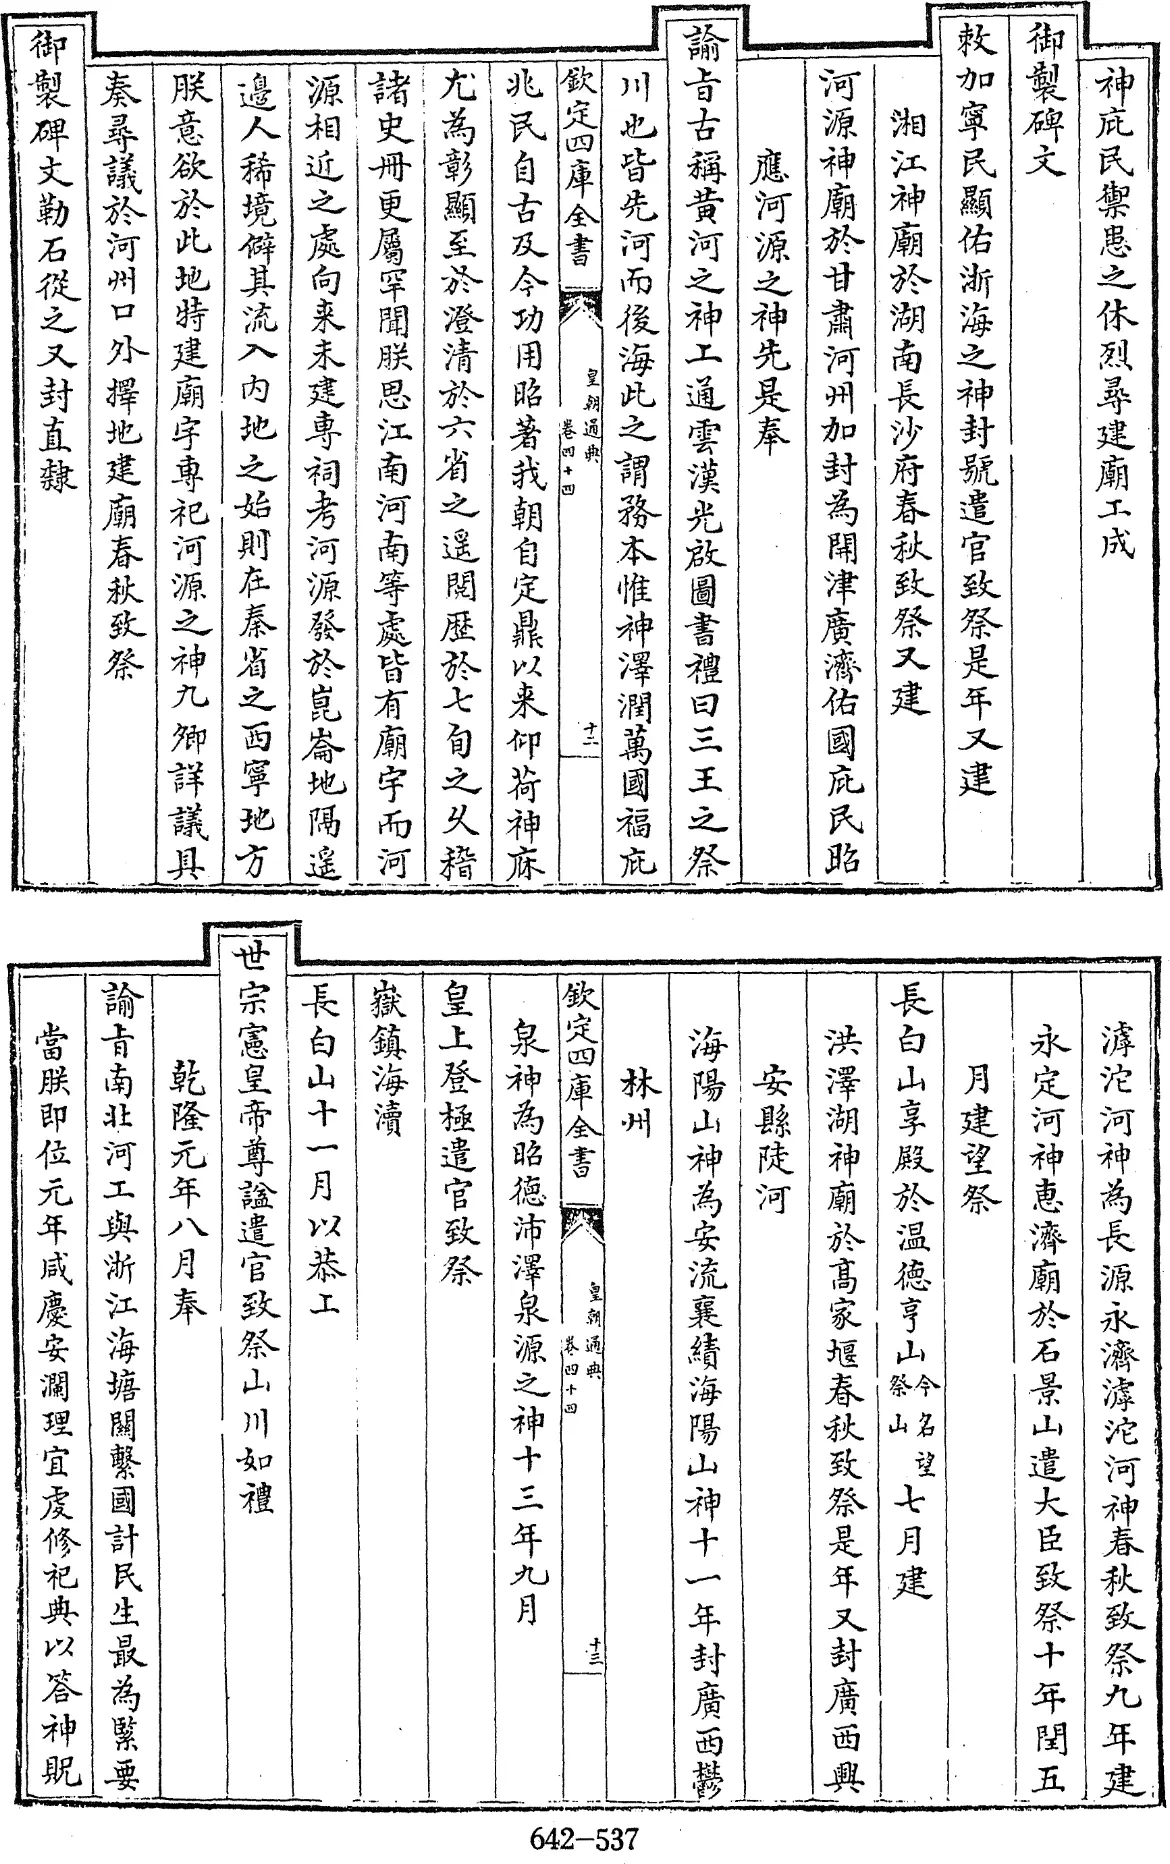 神庇民禦患之休烈尋建廟工成
御製碑文
敕加寧民顯佑浙海之神封號遣官致祭是年又建
湘江神廟於湖南長沙府春秋致祭又建
河源神廟於甘肅河州加封為開津廣濟佑國庇民昭
應河源之神先是奉
諭旨古稱黄河之神工通雲漢光啟圖書禮曰三王之祭
川也皆先河而後海此之謂務本惟神澤潤萬國福庇
欽定四庫全書
皇朝通典
卷四十四
十二
兆民自古及今功用昭著我朝自定鼎以来仰荷神庥
尤為彰顯至於澄清於六省之遥閲歴於七旬之久稽
諸史冊更屬罕聞朕思江南河南等處皆有廟宇而河
源相近之處向来未建専祠考河源發於崑崙地隔遥
邊人稀境僻其流入内地之始則在秦省之西寧地方
朕意欲於此地特建廟宇專祀河源之神九卿詳議具
奏尋議於河州口外擇地建廟春秋致祭
御製碑文勒石從之又封直隸
滹沱河神為長源永濟滹沱河神春秋致祭九年建
永定河神惠濟廟於石景山遣大臣致祭十年閏五
月建望祭
長白山享殿於温德亨山今名望祭山七月建
洪澤湖神廟於髙家堰春秋致祭是年又封廣西興
安縣陡河
海陽山神為安流襄績海陽山神十一年封廣西鬱
林州
欽定四庫全書
皇朝通典
卷四十四
十三
泉神為昭德沛澤泉源之神十三年九月
皇上登極遣官致祭
嶽鎮海瀆
長白山十一月以恭上
世宗憲皇帝尊諡遣官致祭山川如禮
乾隆元年八月奉
諭旨南北河工與浙江海塘關繫國計民生最為緊要
當朕即位元年咸慶安瀾理宜虔修祀典以答神貺
642-537